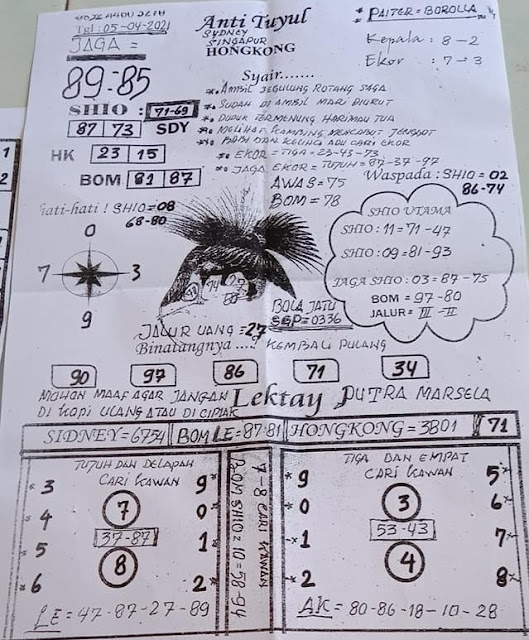 Tgl : 05-04-2021
JAGA =
89=85
Anti Tuyul
SYDNEY
SINGAPUR
HONGKONG
* PAITER = BOROLLA *
Kepala : 8-2
Ekor : 7-3
Syair.......
AMBIL SEGULUNG ROTANG SAGA
SUDAH DI AMBIL MARI DIURUT
DUDUK TERMENUNG HARIMAU TUA
MELIHAT KAMBING MENCABUT JENGGOT
BABI DAN KUCING ADU CARI EKOR
EKOR = TIGA = 23-43-73
JAGA EKOR = TUJUH = 87-37-97
SHIO : 71-69
87 73 SDY
HK 23 15
BOM 81 87
AWAS = 75
BOM = 78
Waspada : SHIO = 02
86-74
Hati-hati ! SHIO = 08
68-80
0
7 3
9
SHIO UTAMA
SHIO : 11 = 71-47
SHIO : 09 = 81-93
JAGA SHIO : 03 = 87-75
BOM = 97-80
JALUR = III - II
BOLA JATU
SGP = 0336
JALUR UANG = 27
Binatangnya ....? KEMBALI PULANG
90 97 86 71 34
MOHON MAAF AGAR JANGAN
DI KOPI ULANG ATAU DI CIPLAK
Lektay PUTRA MARSELA
SIDNEY = 6754 BOM LE = 87-81 HONGKONG = 3801 71
TUJUH DAN DELAPAN
CARI KAWAN
*3 9*
*4 7 0*
37-87
*5 1*
*6 8 2*
LE = 47-87-27-89
7-8 CARI KAWAN
BOM SHIO = 10 = 58-94
TIGA DAN EMPAT
CARI KAWAN
*9 5*
*0 3 6*
53-43
*1 7*
*2 4 8*
AK = 80-86-18-10-28